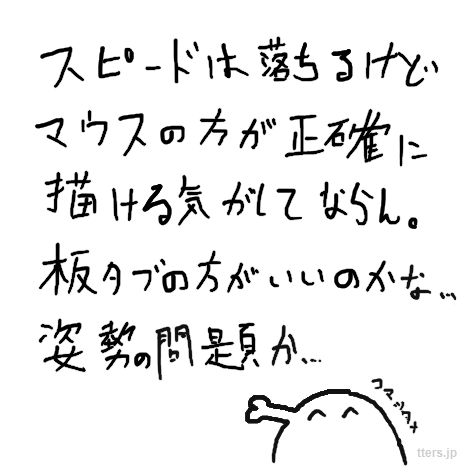 スピードは落ちるけど
マウスの方が正確に
描ける気がしてならん。
板タブの方がいいのかな…
姿勢の問題か…
コマッタナ
tters.jp